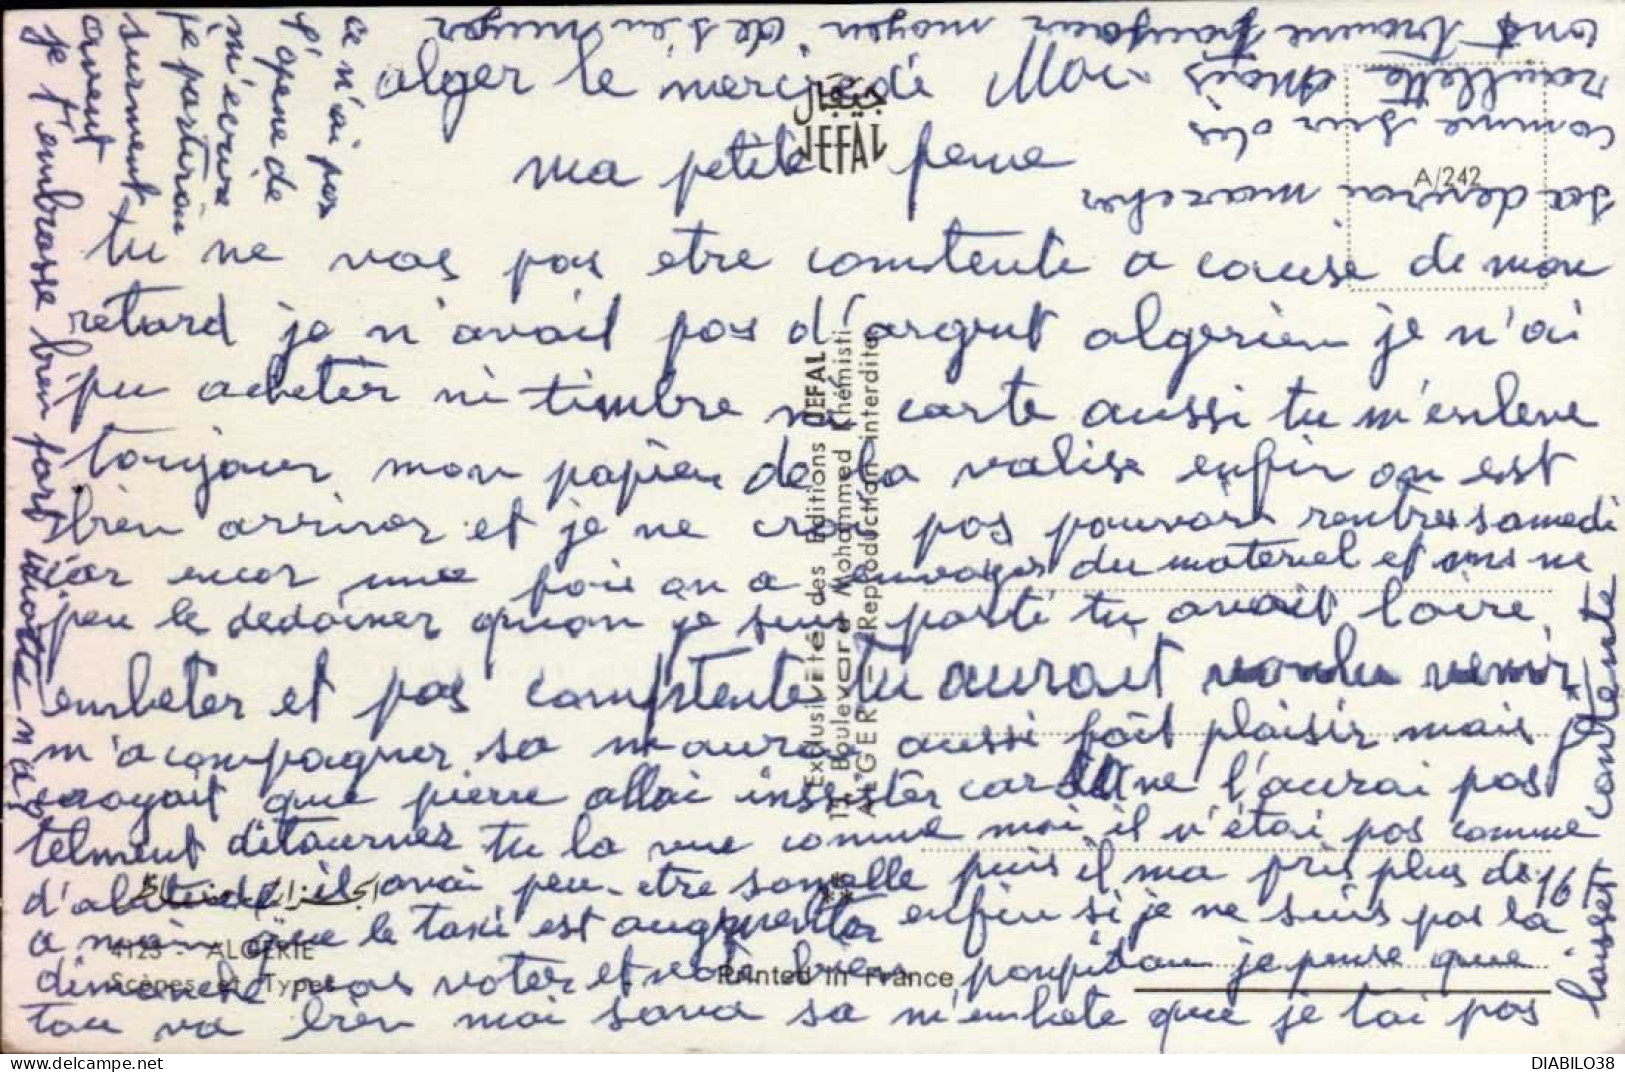 alger le mercredi Mai
ma petite feme
tu ne vas pas etre contente a cause de mon
retard je n'avait pas d'argent algerien je n'ai
pu acheter ni timbre ni carte aussi tu m'enleve
toujour mon papier de la valise enfin on est
bien arriver et je ne croi pas pouvoir rentrer samedi
car encor une fois on a envoyer du materiel et ons ne
peu le dedoiner quon je suis parti tu avait l'aire
embeter et pas contente tu aurait voulu venir
m'acompagner sa maurai aussi fait plaisir mais je
croyait que pierre allai insister car il ne l'aurai pas
telment ditourner tu la vue comme moi il n'étai pas comme
d'abitude il avai peu-etre somolle puis il ma pris plus de 16 F
a moin que le taxi est augmenter enfin si je ne suis pas la
dimanche vas voter et vote bien pompidou je pense que
tou va bien moi sava sa m'embete que je tai pas
laisser contente
sa devrai marcher
comme sur dis
roulette mais
ons trouve toujour moyen de s'en
ce n'ai pas
l'apene de
m'ecrire
je partirai
surment
avent
je t'embrasse bien fort
جيفال
JEFAL
A/242
Exclusivité des Editions JEFAL
Boulevard Mohammed Khémisti
ALGER - (Reproduction interdite)
4123 - ALGÉRIE
Scènes et Types
Printed in France
DIABILO38